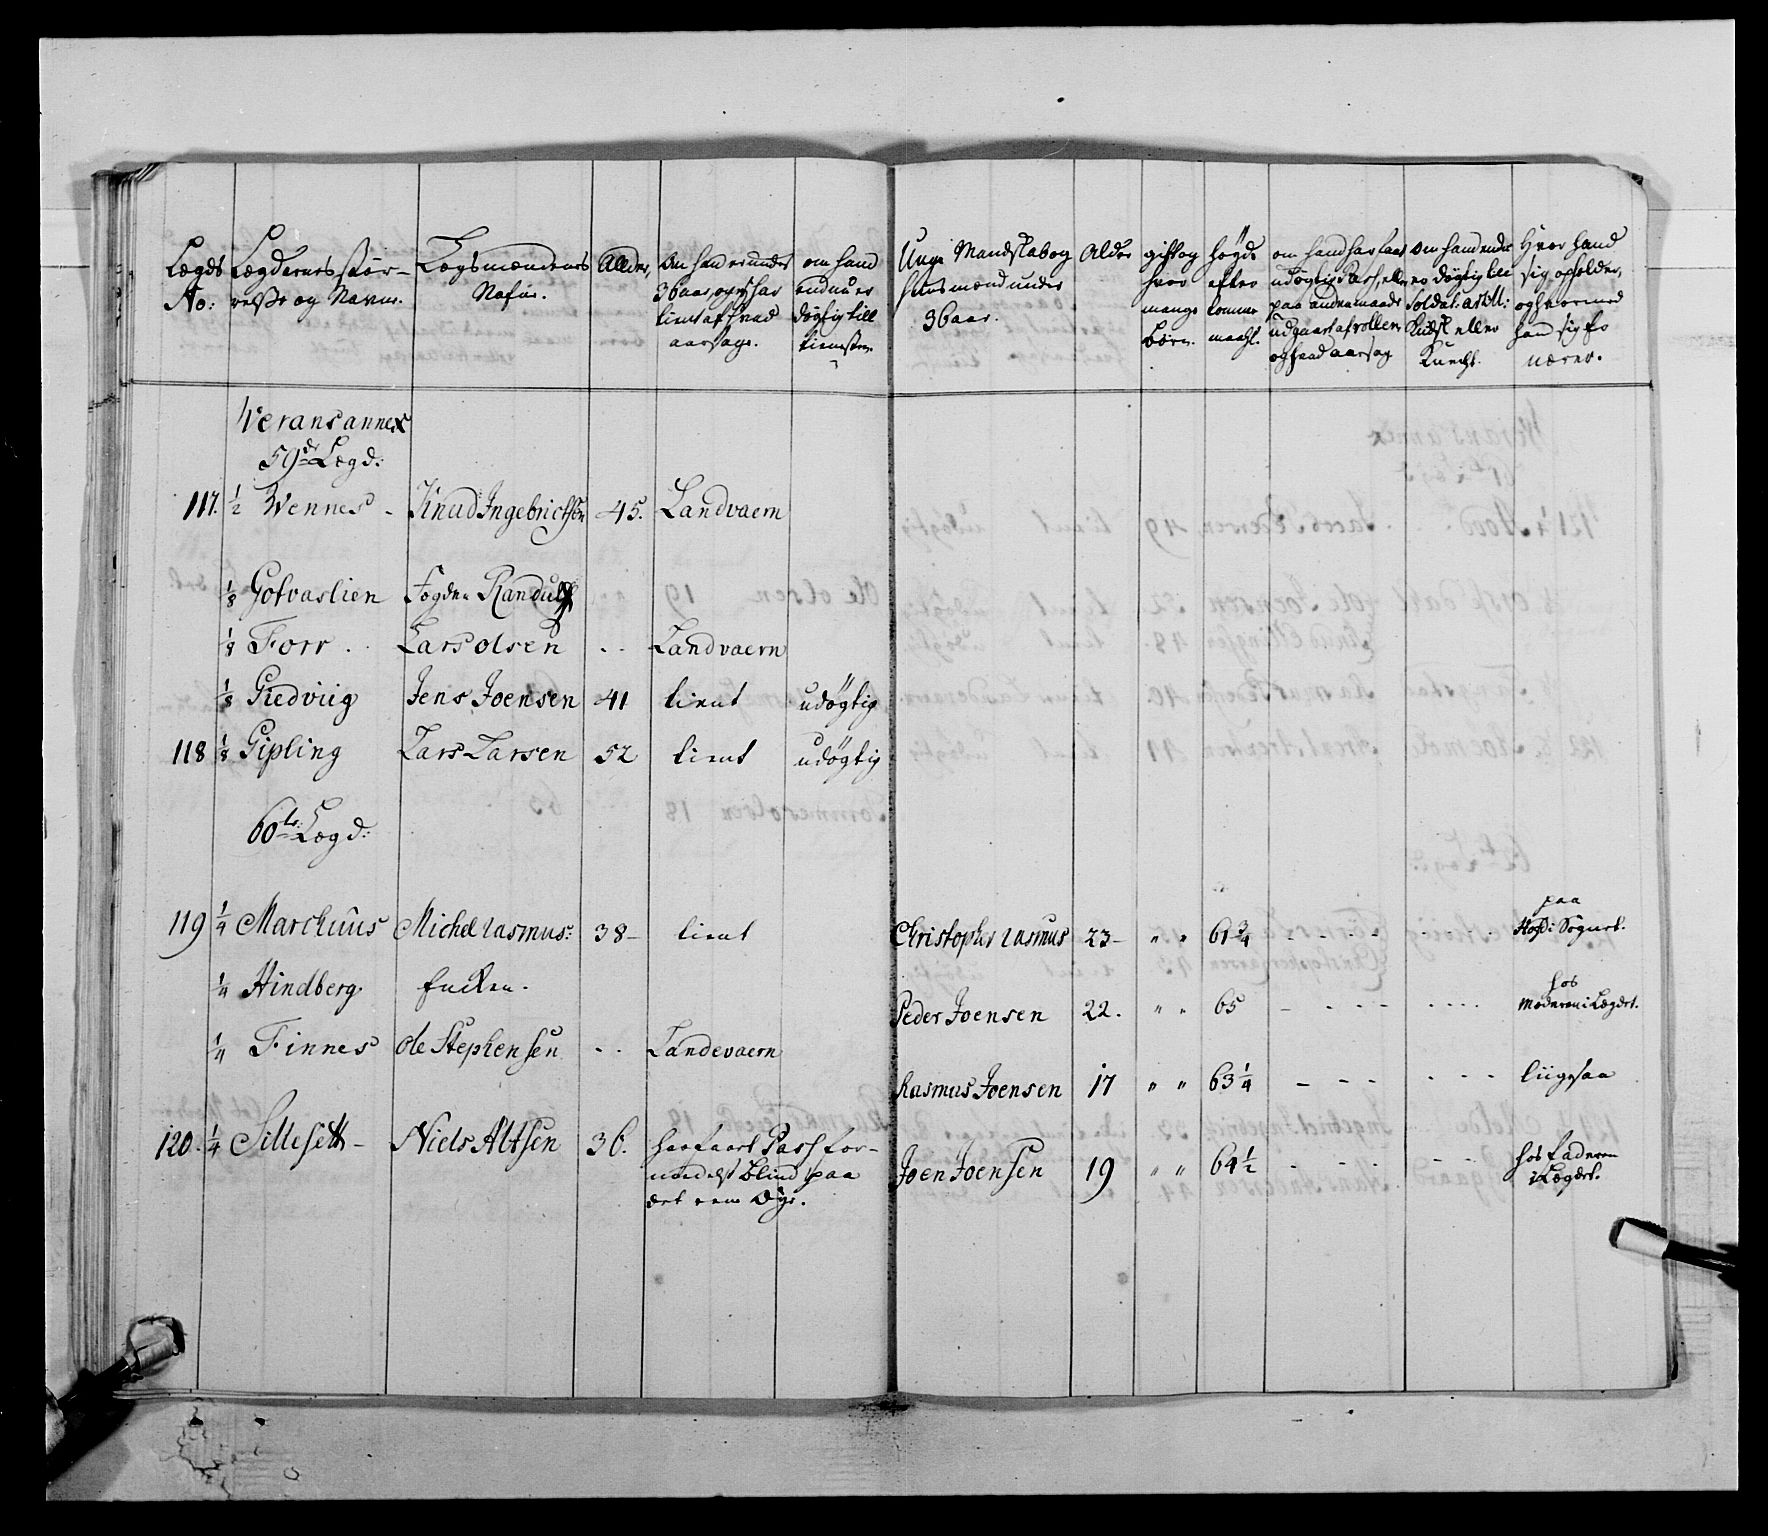 Lægds No:
Lægdernes stør-
relse og Navne.
Lægsmændenes
Nafne.
Allder,
Om han er under
36 aar, og ey har
tient af hvad
aarsage.
om hand
endnu er
døgtig till
tienesten
Unge Mandskab og
huusmænd under
36 aar.
Alder
gift og
hvor
mange
børn.
høyde
efter
tomme
maahl.
om hand har faaet
udøgtig Pass, eller
paa anden maade
udgaaet af rollen
og hvad aarsag
om hand endnu
er døgtig till
Soldat, artill:
Kudsk eller
Knecht.
Hvor hand
sig opholder,
og hvormed
hand sig er
nærer.
Weransannex
59de Lægd:
117. 1/2 Wennes - Knud Ingebrictsen 45. Landvaern
1/8 Gotvaslien Fogden Randulff
1/8 Forr . . Lars olsen . . Landvaern
1/8 Giedviig Jens Joensen 41 tient udøgtig
118 1/8 Gipling Lars Larsen 52 tient udøgtig
60te Lægd:
119 1/4 Marchuus Michel rasmus: 38 - tient
Christopher rasmus 23 - " " 61 3/4 - - - - - - - - paa Hofd: Sognet.
1/4 Hindberg Enken.
Peder Joensen 22. " " 65 - - - - - - - - hos Moderen i Lægdet.
1/4 Finnes ole Stephensen . . Landevaern
Rasmus Joensen 17 " " 63 1/4 - - - - - - liigesaa
120. 1/4 Sillesett - Niels Altsen 36. har faaet Pass for-
medelst blind paa
det eene Øye.
Joen Joensen 19 " " 64 1/2 - - - - - hos faderen
i Lægdet.